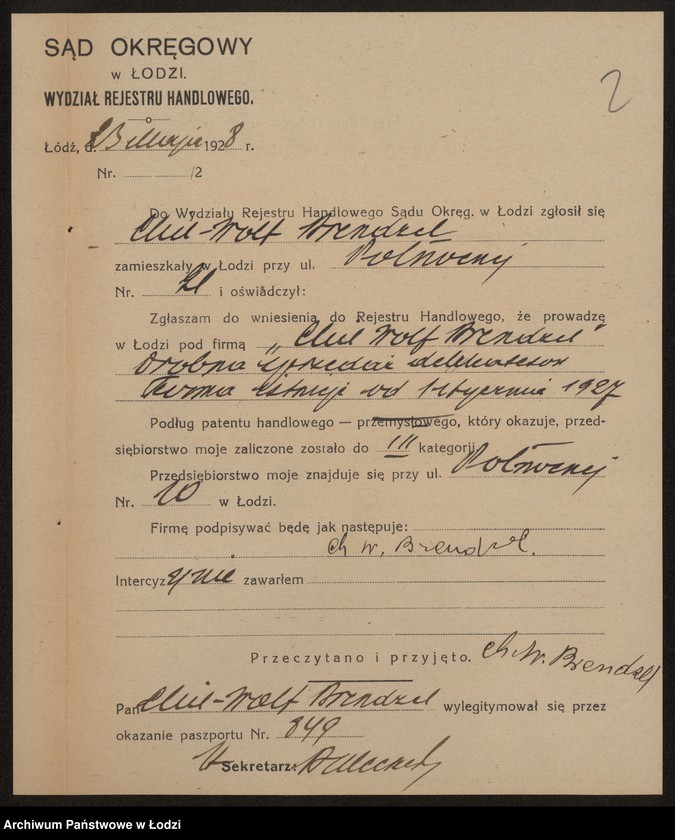 SĄD OKRĘGOWY
w ŁODZI.
WYDZIAŁ REJESTRU HANDLOWEGO.
2
Łódź, d. 23 Maja 1928 r.
Nr. /2
Do Wydziału Rejestru Handlowego Sądu Okręg. w Łodzi zgłosił się
Chil-Wolf Brendzel
zamieszkały w Łodzi przy ul. Północnej
Nr. i oświadczył:
Zgłaszam do wniesienia do Rejestru Handlowego, że prowadzę
w Łodzi pod firmą „Chil Wolf Brendzel"
Drobna sprzedaż delikatesów
Firma istnieje od 1 stycznia 1927
Podług patentu handlowego — przemysłowego, który okazuje, przed-
siębiorstwo moje zaliczone zostało do III kategorji
Przedsiębiorstwo moje znajduje się przy ul. Północnej
Nr. 10 w Łodzi.
Firmę podpisywać będę jak następuje:
Ch W. Brendzel.
Intercyzy nie zawarłem
Przeczytano i przyjęto. Ch. W. Brendzel
Pan Chil-Wolf Brendzel wylegitymował się przez
okazanie paszportu Nr. 849
Sekretarz:
Archiwum Państwowe w Łodzi